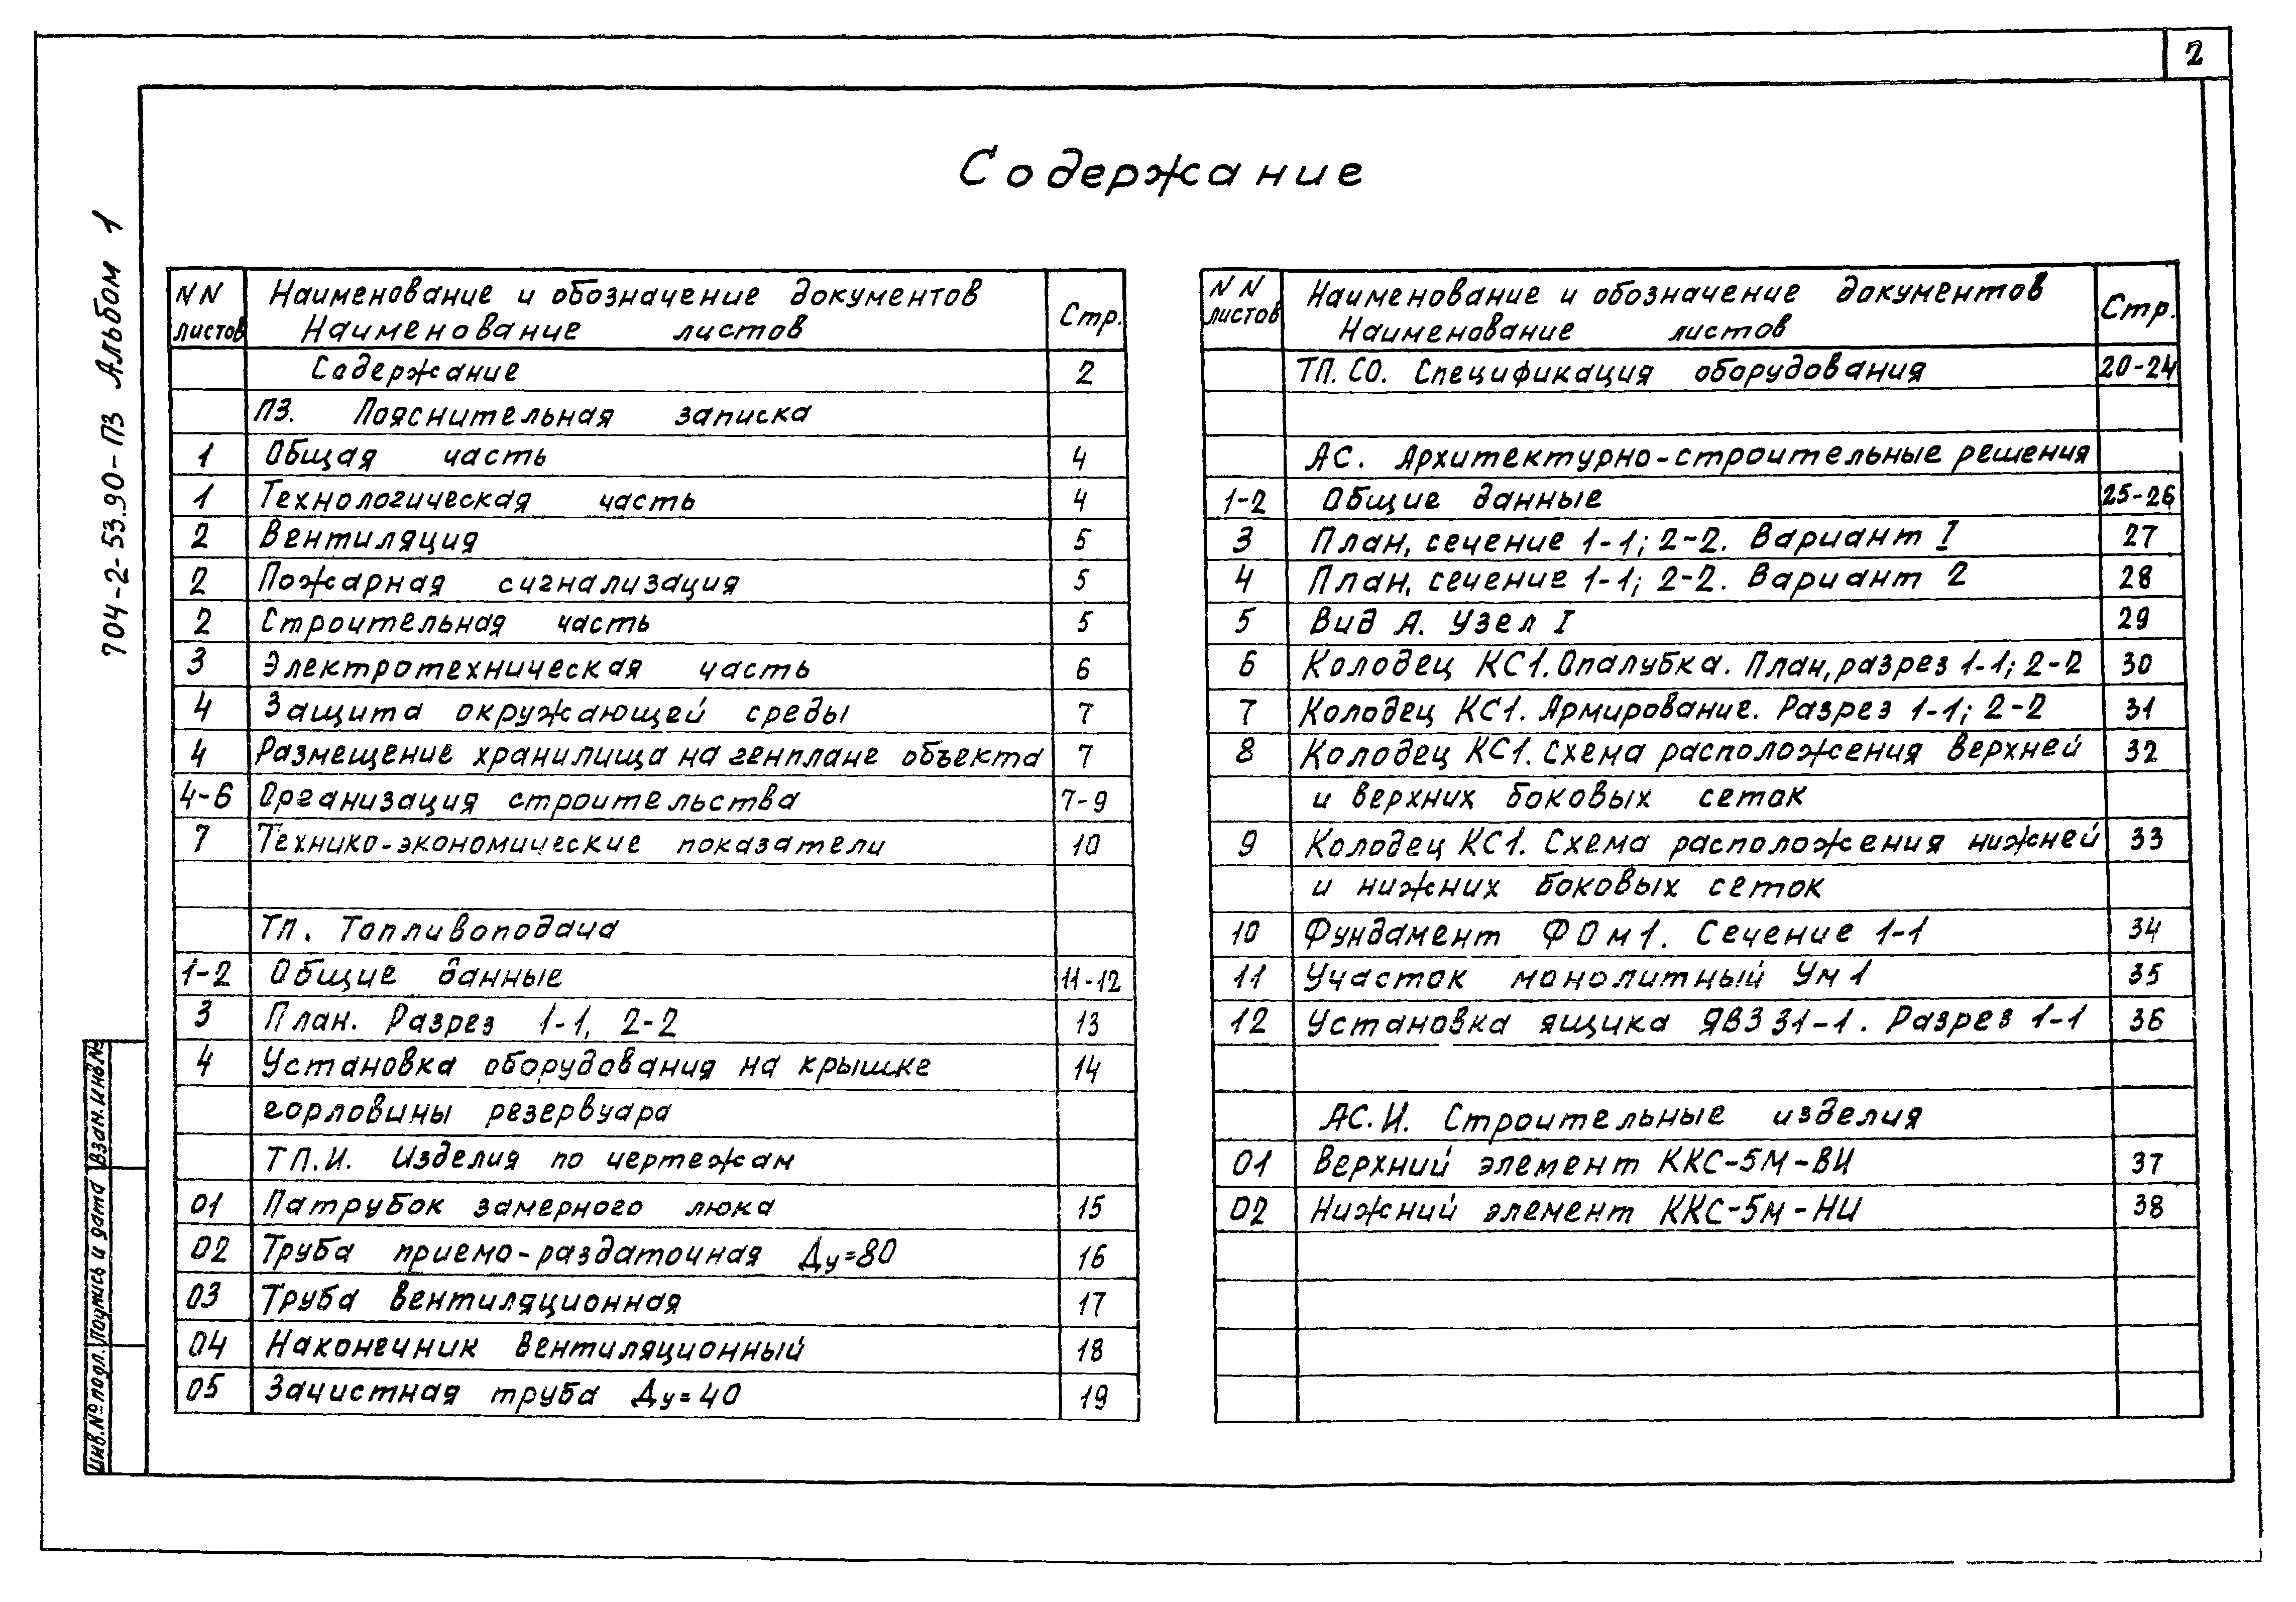 2
Содержание
704-2-53.90-ПЗ Альбом 1
NN листов | Наименование и обозначение документов Наименование листов | Стр.
Содержание 2
ПЗ. Пояснительная записка
1 Общая часть 4
1 Технологическая часть 4
2 Вентиляция 5
2 Пожарная сигнализация 5
2 Строительная часть 5
3 Электротехническая часть 6
4 Защита окружающей среды 7
4 Размещение хранилища на генплане объекта 7
4-6 Организация строительства 7-9
7 Технико-экономические показатели 10
ТП. Топливоподача
1-2 Общие данные 11-12
3 План. Разрез 1-1, 2-2 13
4 Установка оборудования на крышке 14
горловины резервуара
ТП.И. Изделия по чертежам
01 Патрубок замерного люка 15
02 Труба приемо-раздаточная Ду=80 16
03 Труба вентиляционная 17
04 Наконечник вентиляционный 18
05 Зачистная труба Ду=40 19
NN листов | Наименование и обозначение документов Наименование листов | Стр.
ТП.СО. Спецификация оборудования 20-24
АС. Архитектурно-строительные решения
1-2 Общие данные 25-26
3 План, сечение 1-1; 2-2. Вариант I 27
4 План, сечение 1-1; 2-2. Вариант 2 28
5 Вид А. Узел I 29
6 Колодец КС1. Опалубка. План, разрез 1-1; 2-2 30
7 Колодец КС1. Армирование. Разрез 1-1; 2-2 31
8 Колодец КС1. Схема расположения верхней 32
и верхних боковых сеток
9 Колодец КС1. Схема расположения нижней 33
и нижних боковых сеток
10 Фундамент ФОм1. Сечение 1-1 34
11 Участок монолитный Ум1 35
12 Установка ящика ЯВЗ 31-1. Разрез 1-1 36
АС.И. Строительные изделия
01 Верхний элемент ККС-5М-ВИ 37
02 Нижний элемент ККС-5м-НИ 38
Инв.№ подл. Подпись и дата Взам.инв.№